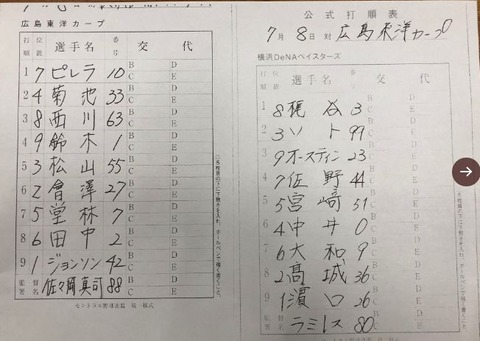 広島東洋カープ
打順 位置 選手名 番号 交代
1 7 ピレラ 10 B D C E
2 4 菊池 33 B D C E
3 8 西川 63 B D C E
4 9 鈴木 1 B D C E
5 3 松山 55 B D C E
6 2 會澤 27 B D C E
7 5 堂林 7 B D C E
8 6 田中 2 B D C E
9 1 ジョンソン 42 B D C E
監督 署名 佐々岡真司 88
セントラル野球連盟
公式打順表
7月8日対広島東洋カープ
横浜DeNAベイスターズ
打順 位置 選手名 番号 交代
1 8 梶谷 3 B D C E
2 3 ソト 99 B D C E
3 9 オースティン 23 B D C E
4 7 佐野 44 B D C E
5 5 宮﨑 51 B D C E
6 4 中井 0 B D C E
7 6 大和 9 B D C E
8 2 髙城 36 B D C E
9 1 濵口 26 B D C E
監督 署名 ラミレス 80